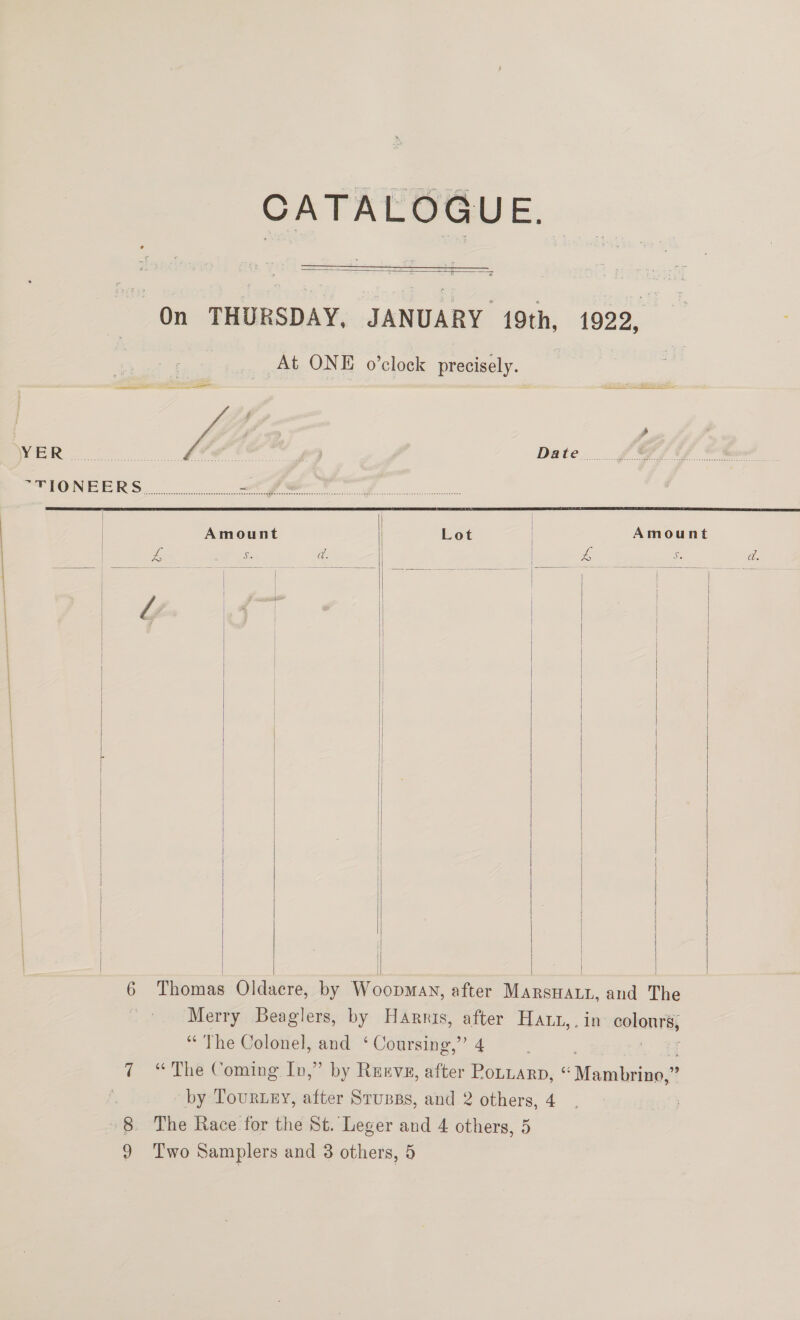 CATALOGUE.
On THURSDAY, JANUARY 19th, 1922,
At ONE o'clock precisely.
YER Date
TIONEERS
Amount Lot Amount
£ s. d. £ s. d.
6 Thomas Oldacre, by WOODMAN, after MARSHALL, and The
Merry Beaglers, by HARRIS, after HALL, in colours,
“The Colonel, and ‘Coursing,” 4
7 “The Coming In,” by REEVE, after POLLARD, “Mambrino,”
by TOURLEY, after STUBBS, and 2 others, 4
8 The Race for the St. Leger and 4 others, 5
9 Two Samplers and 3 others, 5